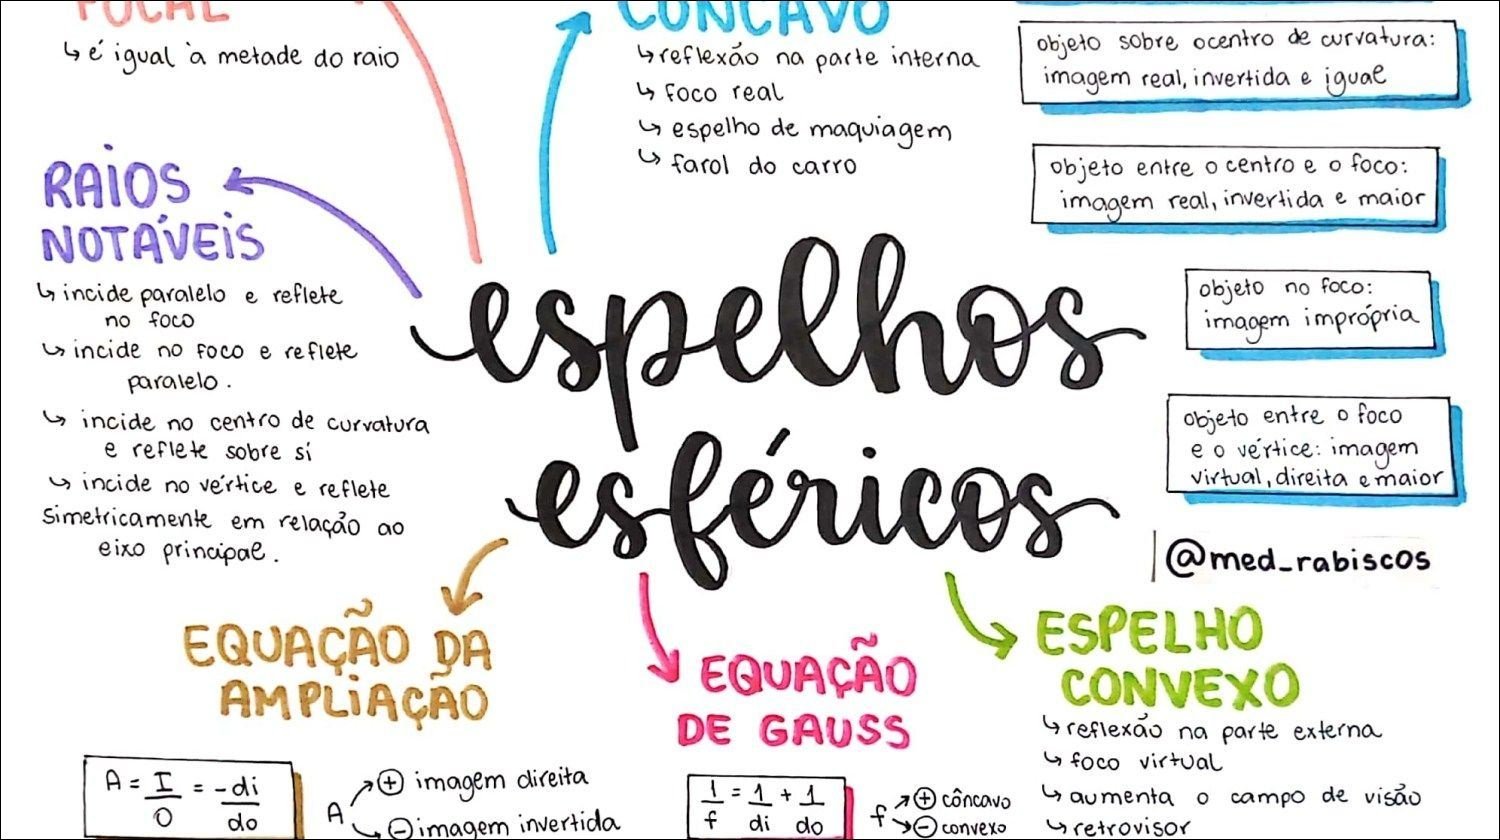 FOCAL
↳ é igual à metade do raio
CÔNCAVO
↳ reflexão na parte interna
↳ foco real
↳ espelho de maquiagem
↳ farol do carro
objeto sobre o centro de curvatura:
imagem real, invertida e igual
objeto entre o centro e o foco:
imagem real, invertida e maior
objeto no foco:
imagem imprópria
objeto entre o foco
e o vértice: imagem
virtual, direita e maior
@med_rabiscos
RAIOS
NOTÁVEIS
↳ incide paralelo e reflete
no foco
↳ incide no foco e reflete
paralelo.
↳ incide no centro de curvatura
e reflete sobre si
↳ incide no vértice e reflete
simetricamente em relação ao
eixo principal.
espelhos
esféricos
EQUAÇÃO DA
AMPLIAÇÃO
A = I/O = -di/do
A
⊕ imagem direita
⊖ imagem invertida
EQUAÇÃO
DE GAUSS
1/f = 1/di + 1/do
f
⊕ côncavo
⊖ convexo
ESPELHO
CONVEXO
↳ reflexão na parte externa
↳ foco virtual
↳ aumenta o campo de visão
↳ retrovisor